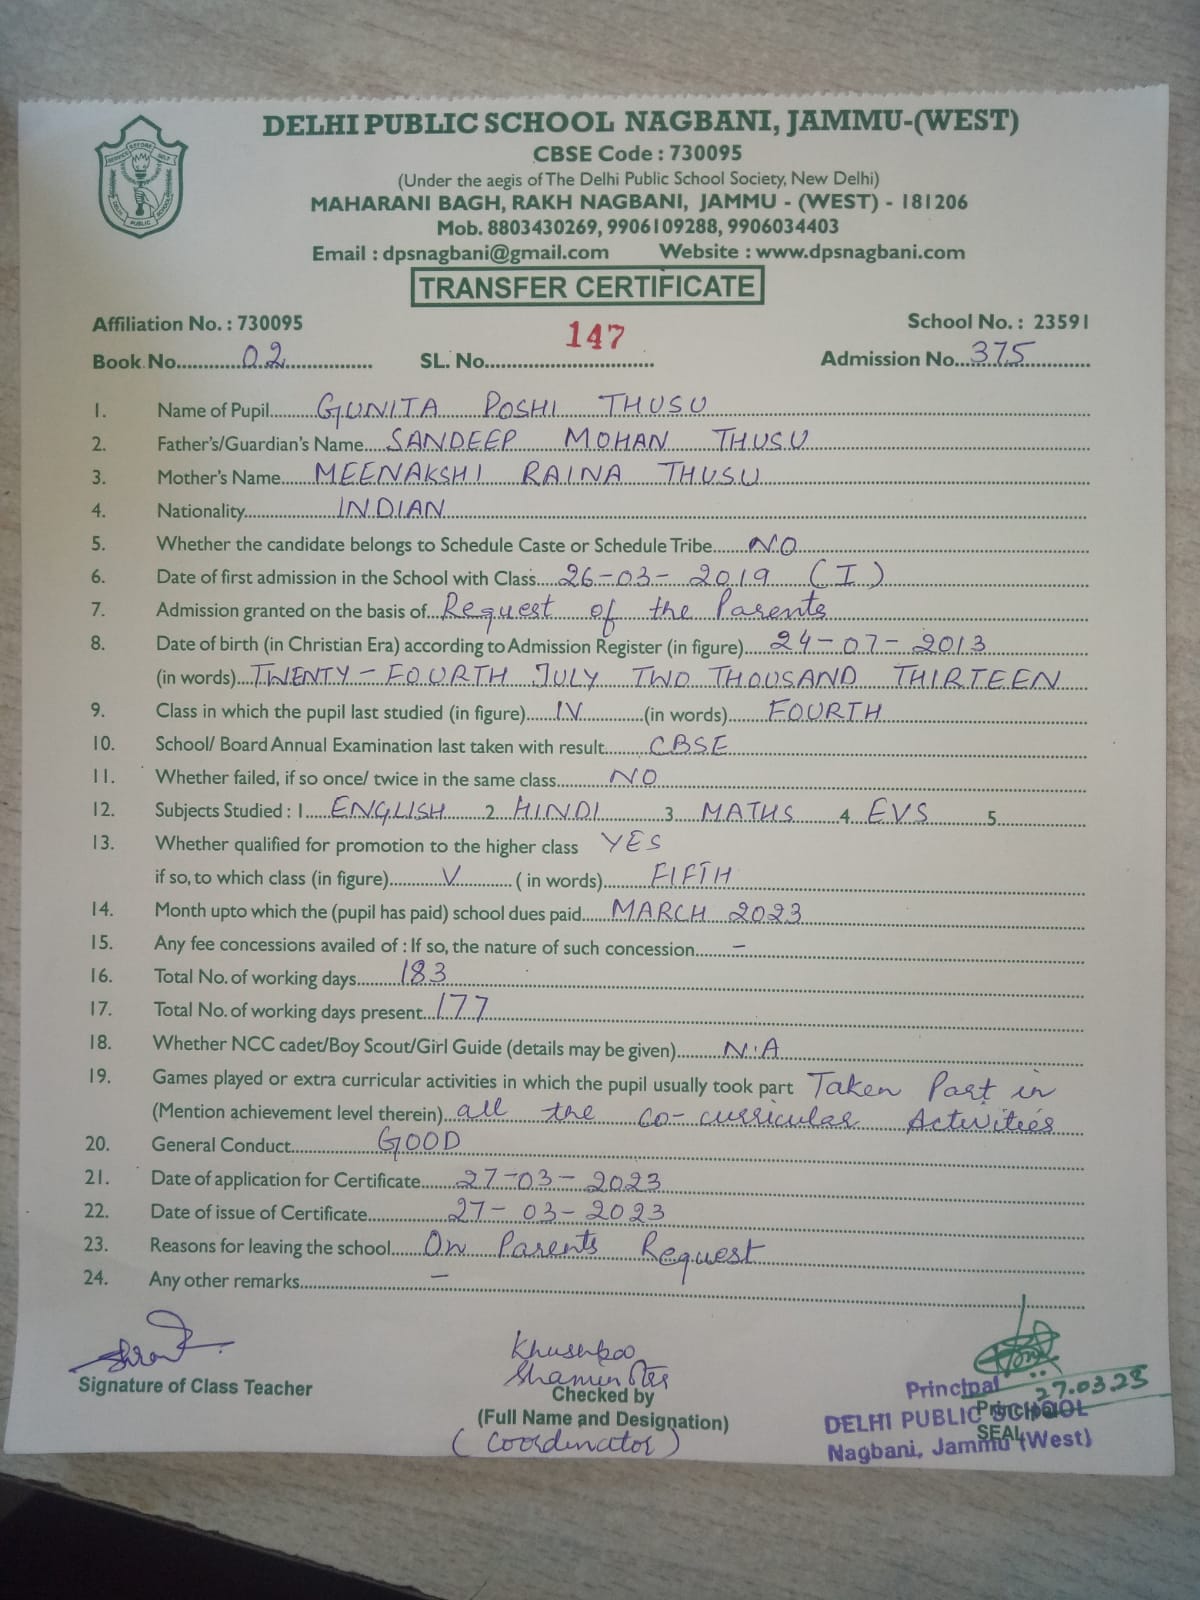 DELHI PUBLIC SCHOOL NAGBANI, JAMMU-(WEST)
CBSE Code : 730095
(Under the aegis of The Delhi Public School Society, New Delhi)
MAHARANI BAGH, RAKH NAGBANI, JAMMU - (WEST) - 181206
Mob. 8803430269, 9906109288, 9906034403
Email : dpsnagbani@gmail.com Website : www.dpsnagbani.com
SERVICE BEFORE SELF
DELHI PUBLIC SCHOOL
TRANSFER CERTIFICATE
Affiliation No. : 730095 School No. : 23591
Book No. 02 SL. No. 147 Admission No. 375
1. Name of Pupil GUNITA POSHI THUSU
2. Father's/Guardian's Name SANDEEP MOHAN THUSU
3. Mother's Name MEENAKSHI RAINA THUSU
4. Nationality INDIAN
5. Whether the candidate belongs to Schedule Caste or Schedule Tribe NO
6. Date of first admission in the School with Class 26-03-2019 (I)
7. Admission granted on the basis of Request of the Parents
8. Date of birth (in Christian Era) according to Admission Register (in figure) 24-07-2013
(in words) TWENTY-FOURTH JULY TWO THOUSAND THIRTEEN
9. Class in which the pupil last studied (in figure) IV (in words) FOURTH
10. School/ Board Annual Examination last taken with result CBSE
11. Whether failed, if so once/ twice in the same class NO
12. Subjects Studied : 1. ENGLISH 2. HINDI 3. MATHS 4. EVS 5.
13. Whether qualified for promotion to the higher class YES
if so, to which class (in figure) V ( in words) FIFTH
14. Month upto which the (pupil has paid) school dues paid MARCH 2023
15. Any fee concessions availed of : If so, the nature of such concession -
16. Total No. of working days 183
17. Total No. of working days present 177
18. Whether NCC cadet/Boy Scout/Girl Guide (details may be given) N.A
19. Games played or extra curricular activities in which the pupil usually took part Taken Part in
(Mention achievement level therein) all the co-curricular Activities
20. General Conduct GOOD
21. Date of application for Certificate 27-03-2023
22. Date of issue of Certificate 27-03-2023
23. Reasons for leaving the school On Parents Request
24. Any other remarks -
Signature of Class Teacher
Khushboo
Checked by
(Full Name and Designation)
(Coordinator)
27.03.23
Principal
DELHI PUBLIC SCHOOL
Nagbani, Jammu (West)
Principal
SEAL